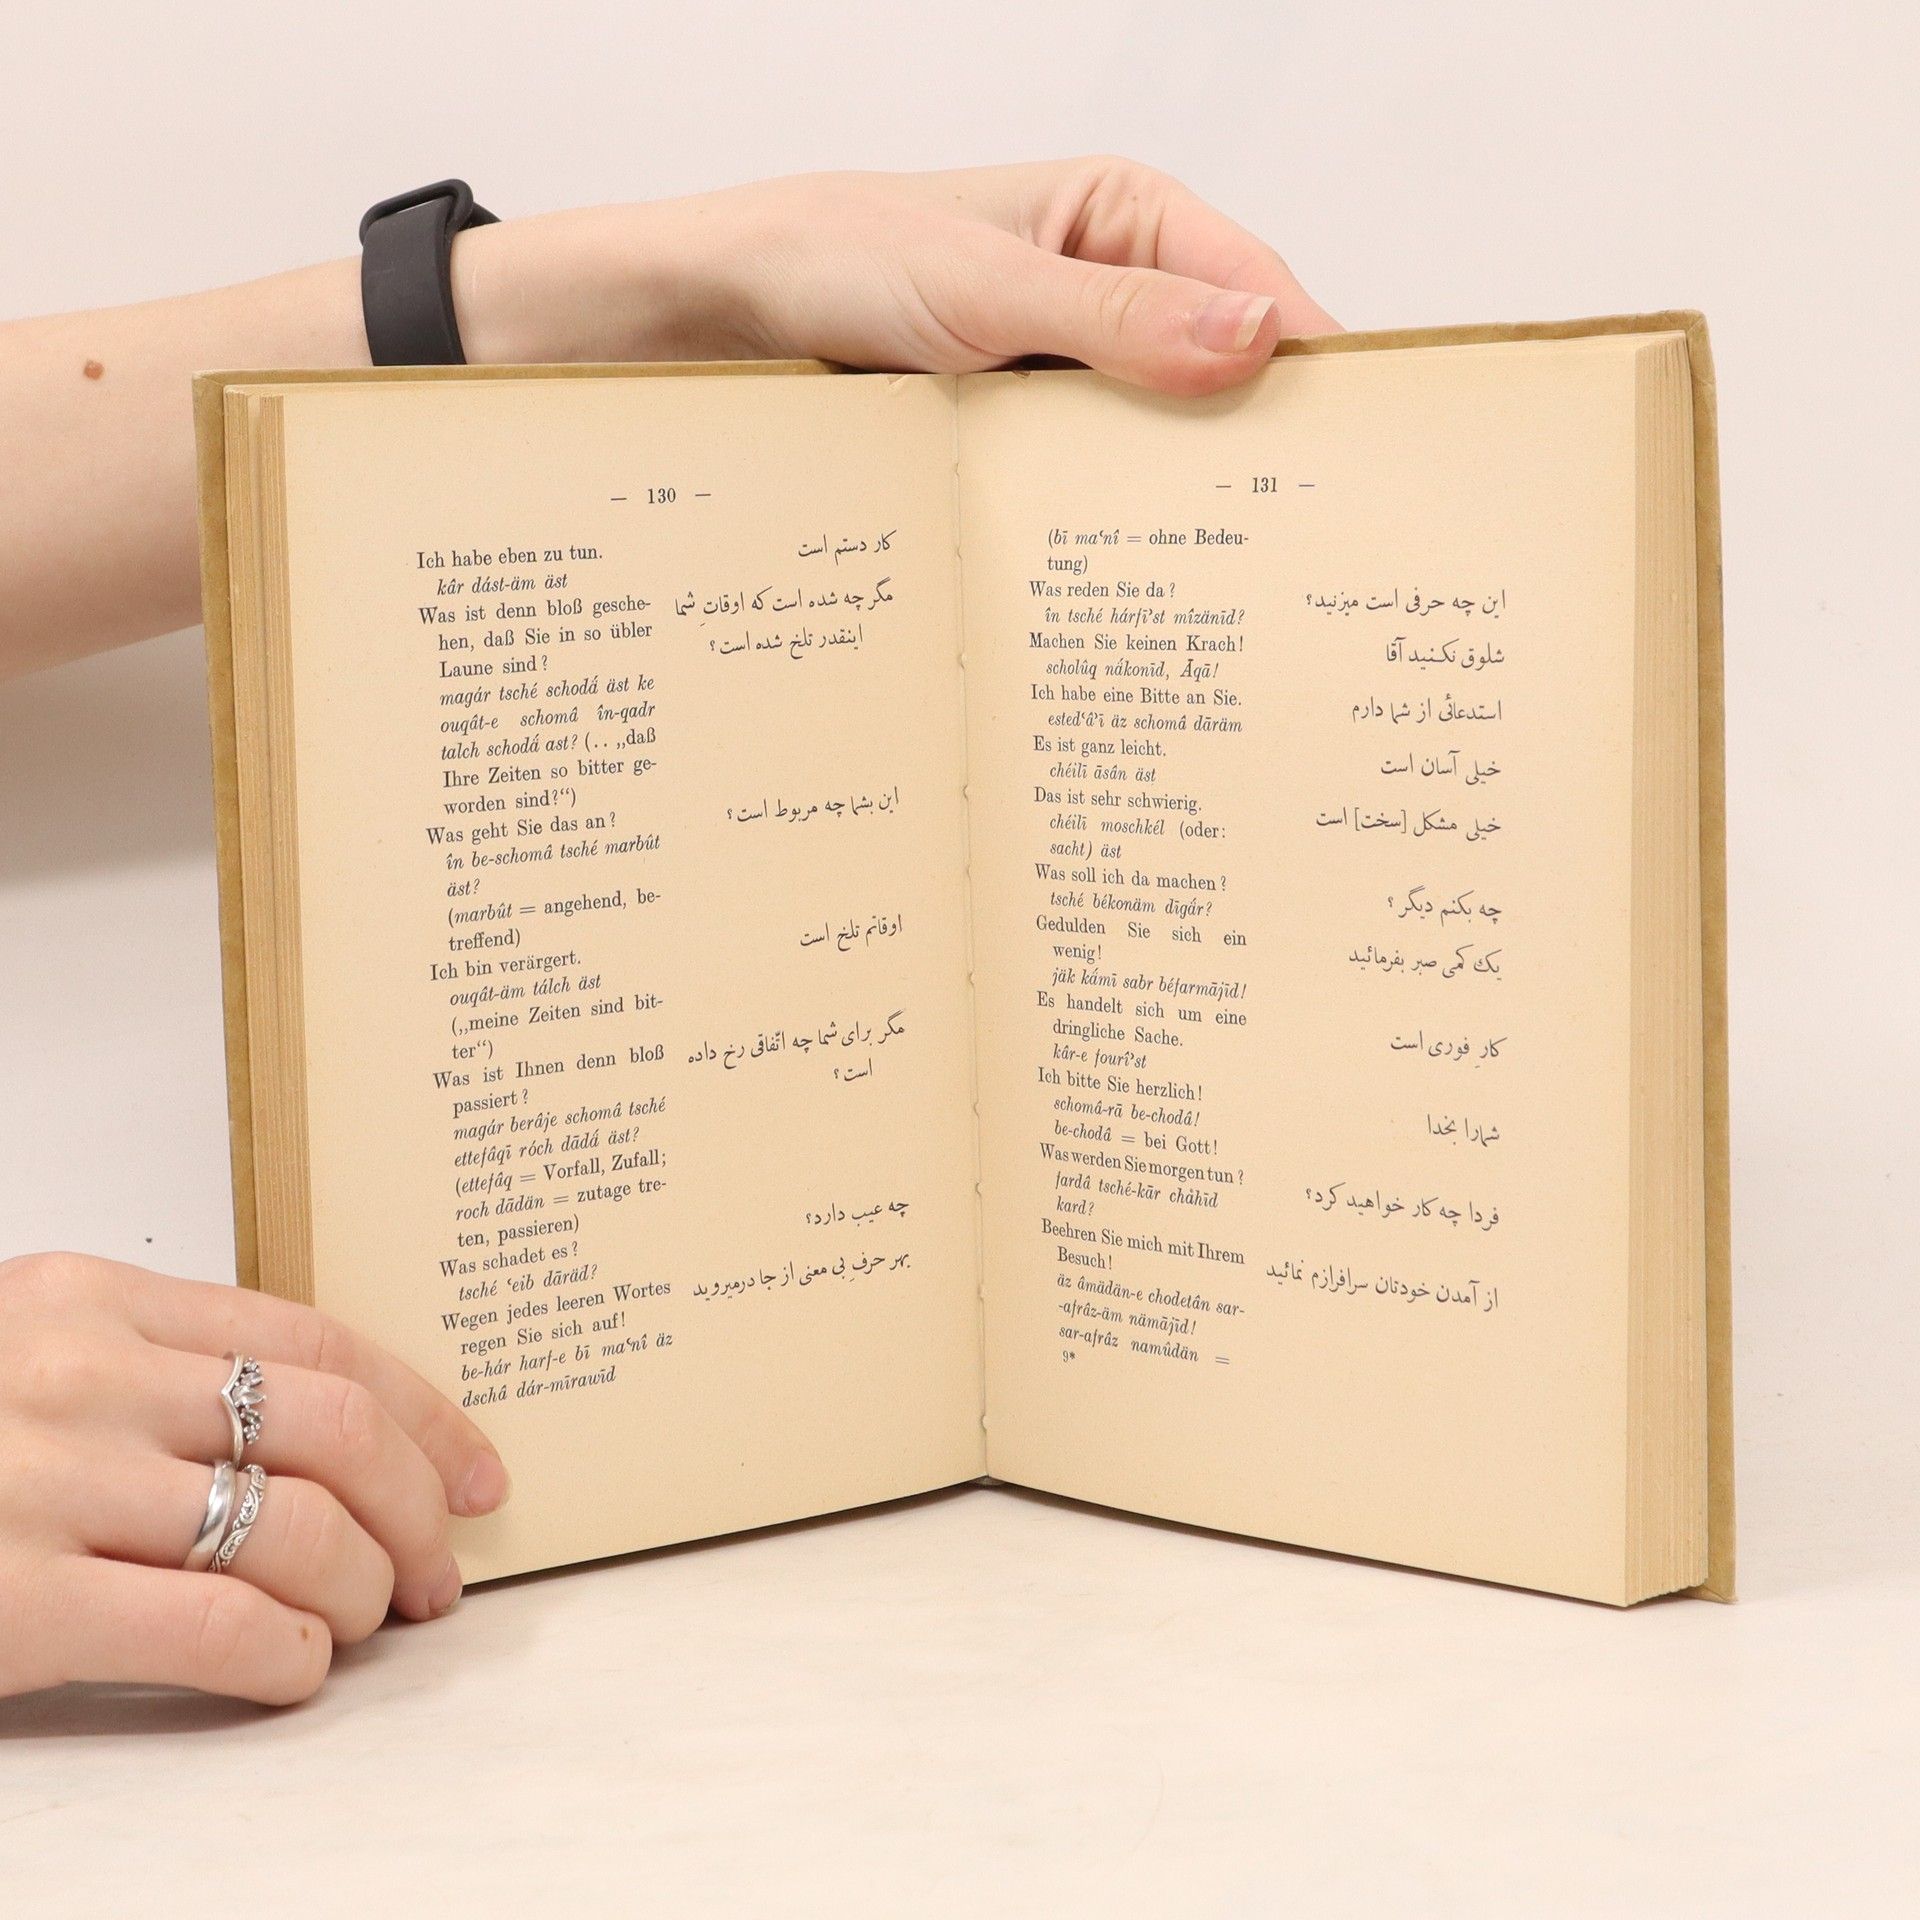 — 130 —
Ich habe eben zu tun.
کار دستم است
kâr dást-äm äst
Was ist denn bloß gesche-
مگر چه شده است که اوقاتِ شما
hen, daß Sie in so übler
اینقدر تلخ شده است؟
Laune sind?
magár tsché schodá̄ äst ke
ouqât-e schomâ în-qadr
talch schodá̄ ast? (. . „daß
Ihre Zeiten so bitter ge-
worden sind?“)
Was geht Sie das an?
این بشما چه مربوط است؟
în be-schomâ tsché marbût
äst?
(marbût = angehend, be-
treffend)
Ich bin verärgert.
اوقاتم تلخ است
ouqât-äm tálch äst
(„meine Zeiten sind bit-
ter“)
Was ist Ihnen denn bloß
مگر برای شما چه اتّفاقی رخ داده
passiert?
است؟
magár berâje schomâ tsché
ettefâqī róch dādá̄ äst?
(ettefâq = Vorfall, Zufall;
roch dādän = zutage tre-
ten, passieren)
Was schadet es?
چه عیب دارد؟
tsché ‘eib dāräd?
Wegen jedes leeren Wortes
بهر حرفِ بی معنی از جا درمیروید
regen Sie sich auf!
be-hár harf-e bī ma‘nî äz
dschâ dár-mīrawīd
— 131 —
(bī ma‘nî = ohne Bedeu-
tung)
Was reden Sie da?
این چه حرفی است میزنید؟
în tsché hárfī’st mîzänīd?
Machen Sie keinen Krach!
شلوق نکنید آقا
scholûq nákonīd, Āqā!
Ich habe eine Bitte an Sie.
استدعائی از شما دارم
ested‘â’ī äz schomâ dāräm
Es ist ganz leicht.
خیلی آسان است
chéilī āsân äst
Das ist sehr schwierig.
خیلی مشکل [سخت] است
chéilī moschkél (oder:
sacht) äst
Was soll ich da machen?
چه بکنم دیگر؟
tsché békonäm dīgár?
Gedulden Sie sich ein
یك کمی صبر بفرمائید
wenig!
jäk kámī sabr béfarmājīd!
Es handelt sich um eine
dringliche Sache.
کارِ فوری است
kâr-e fourî’st
Ich bitte Sie herzlich!
شمارا بخدا
schomâ-rā be-chodâ!
be-chodâ = bei Gott!
Was werden Sie morgen tun?
فردا چه کار خواهید کرد؟
fardâ tsché-kār châhīd
kard?
Beehren Sie mich mit Ihrem
از آمدن خودتان سرافرازم نمائید
Besuch!
äz âmädän-e chodetân sar-
-afrâz-äm nämājīd!
sar-afrâz namûdän =
9*